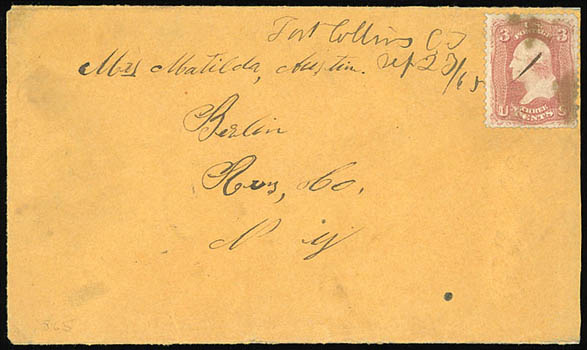 Fort Collins C T
Sep 23/65
Mrs Matilda, Austin.
Berlin
Co.
N Y
3 3
U THREE CENTS S
865